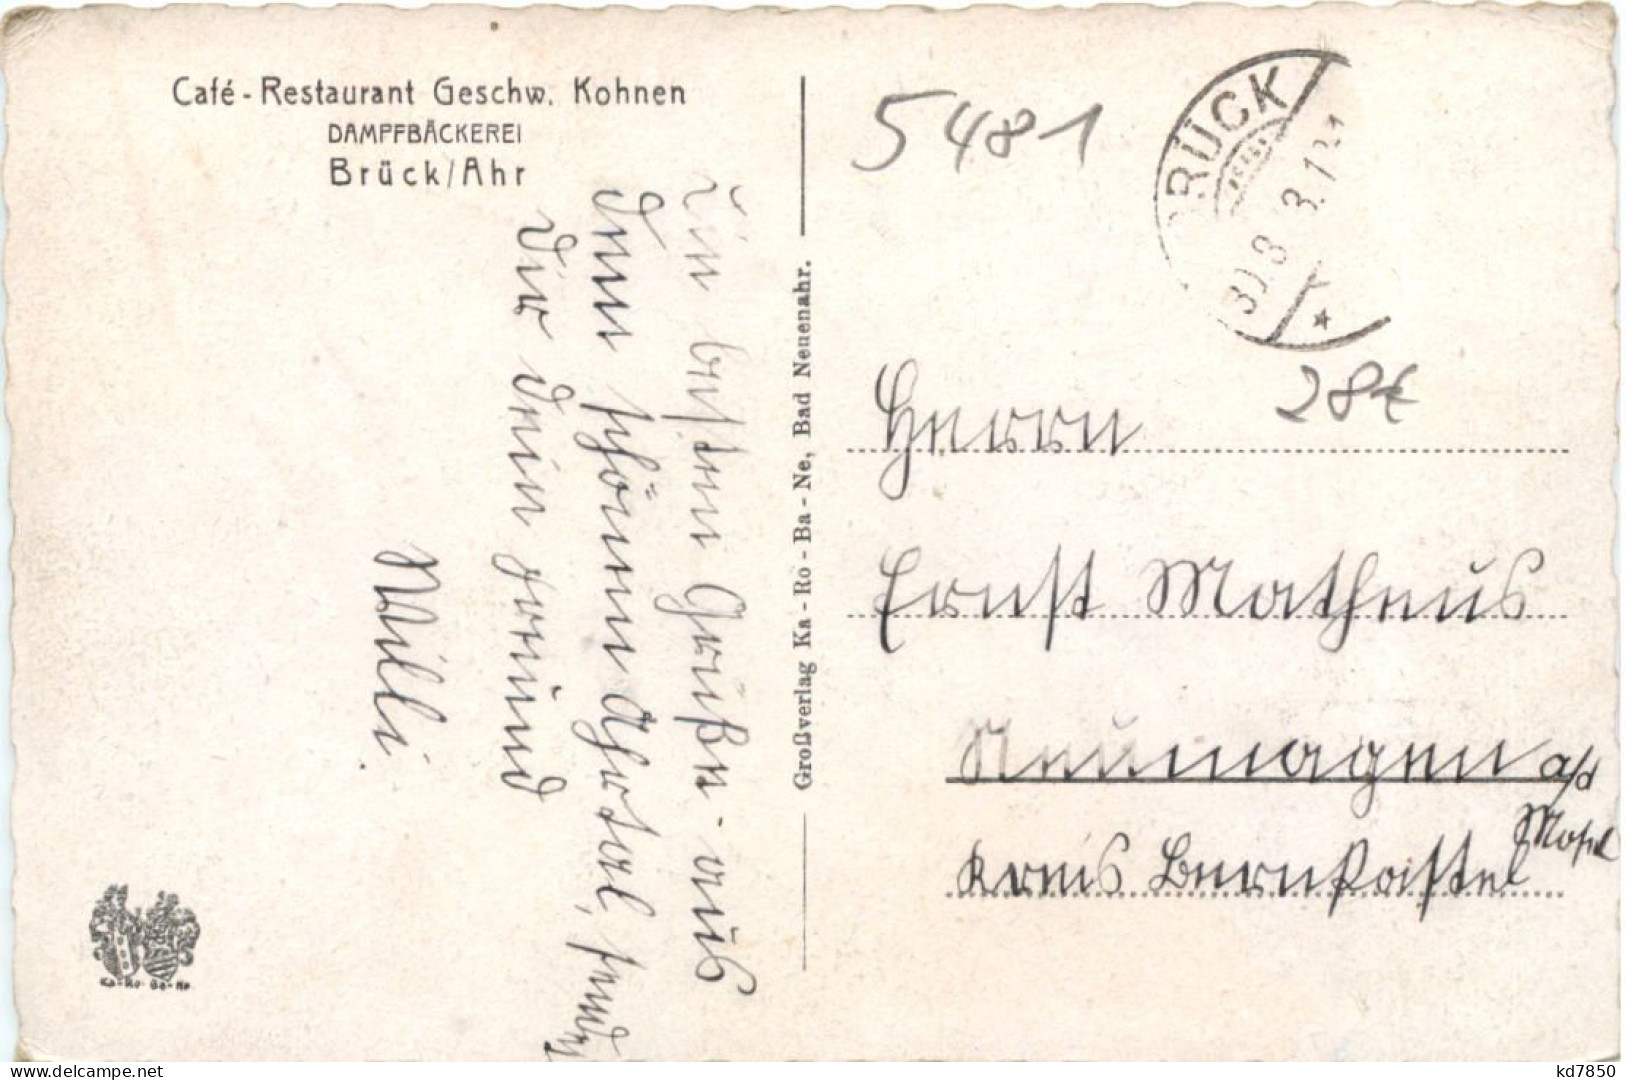 Café - Restaurant Geschw. Kohnen
DAMPFBÄCKEREI
Brück/Ahr
Die besten Grüße aus
dem schönen Ahrtal, sendet
Dir dein Freund
Willi.
Großverlag Ka - Ro - Ba - Ne, Bad Neuenahr.
Ka-Ro-Ba-Ne
5481
BRÜCK
30.8.3
28€
Herrn
Ernst Matheus
Neumagen a/d
Mosel
Kreis Bernkastel
www.delcampe.net
kd7850